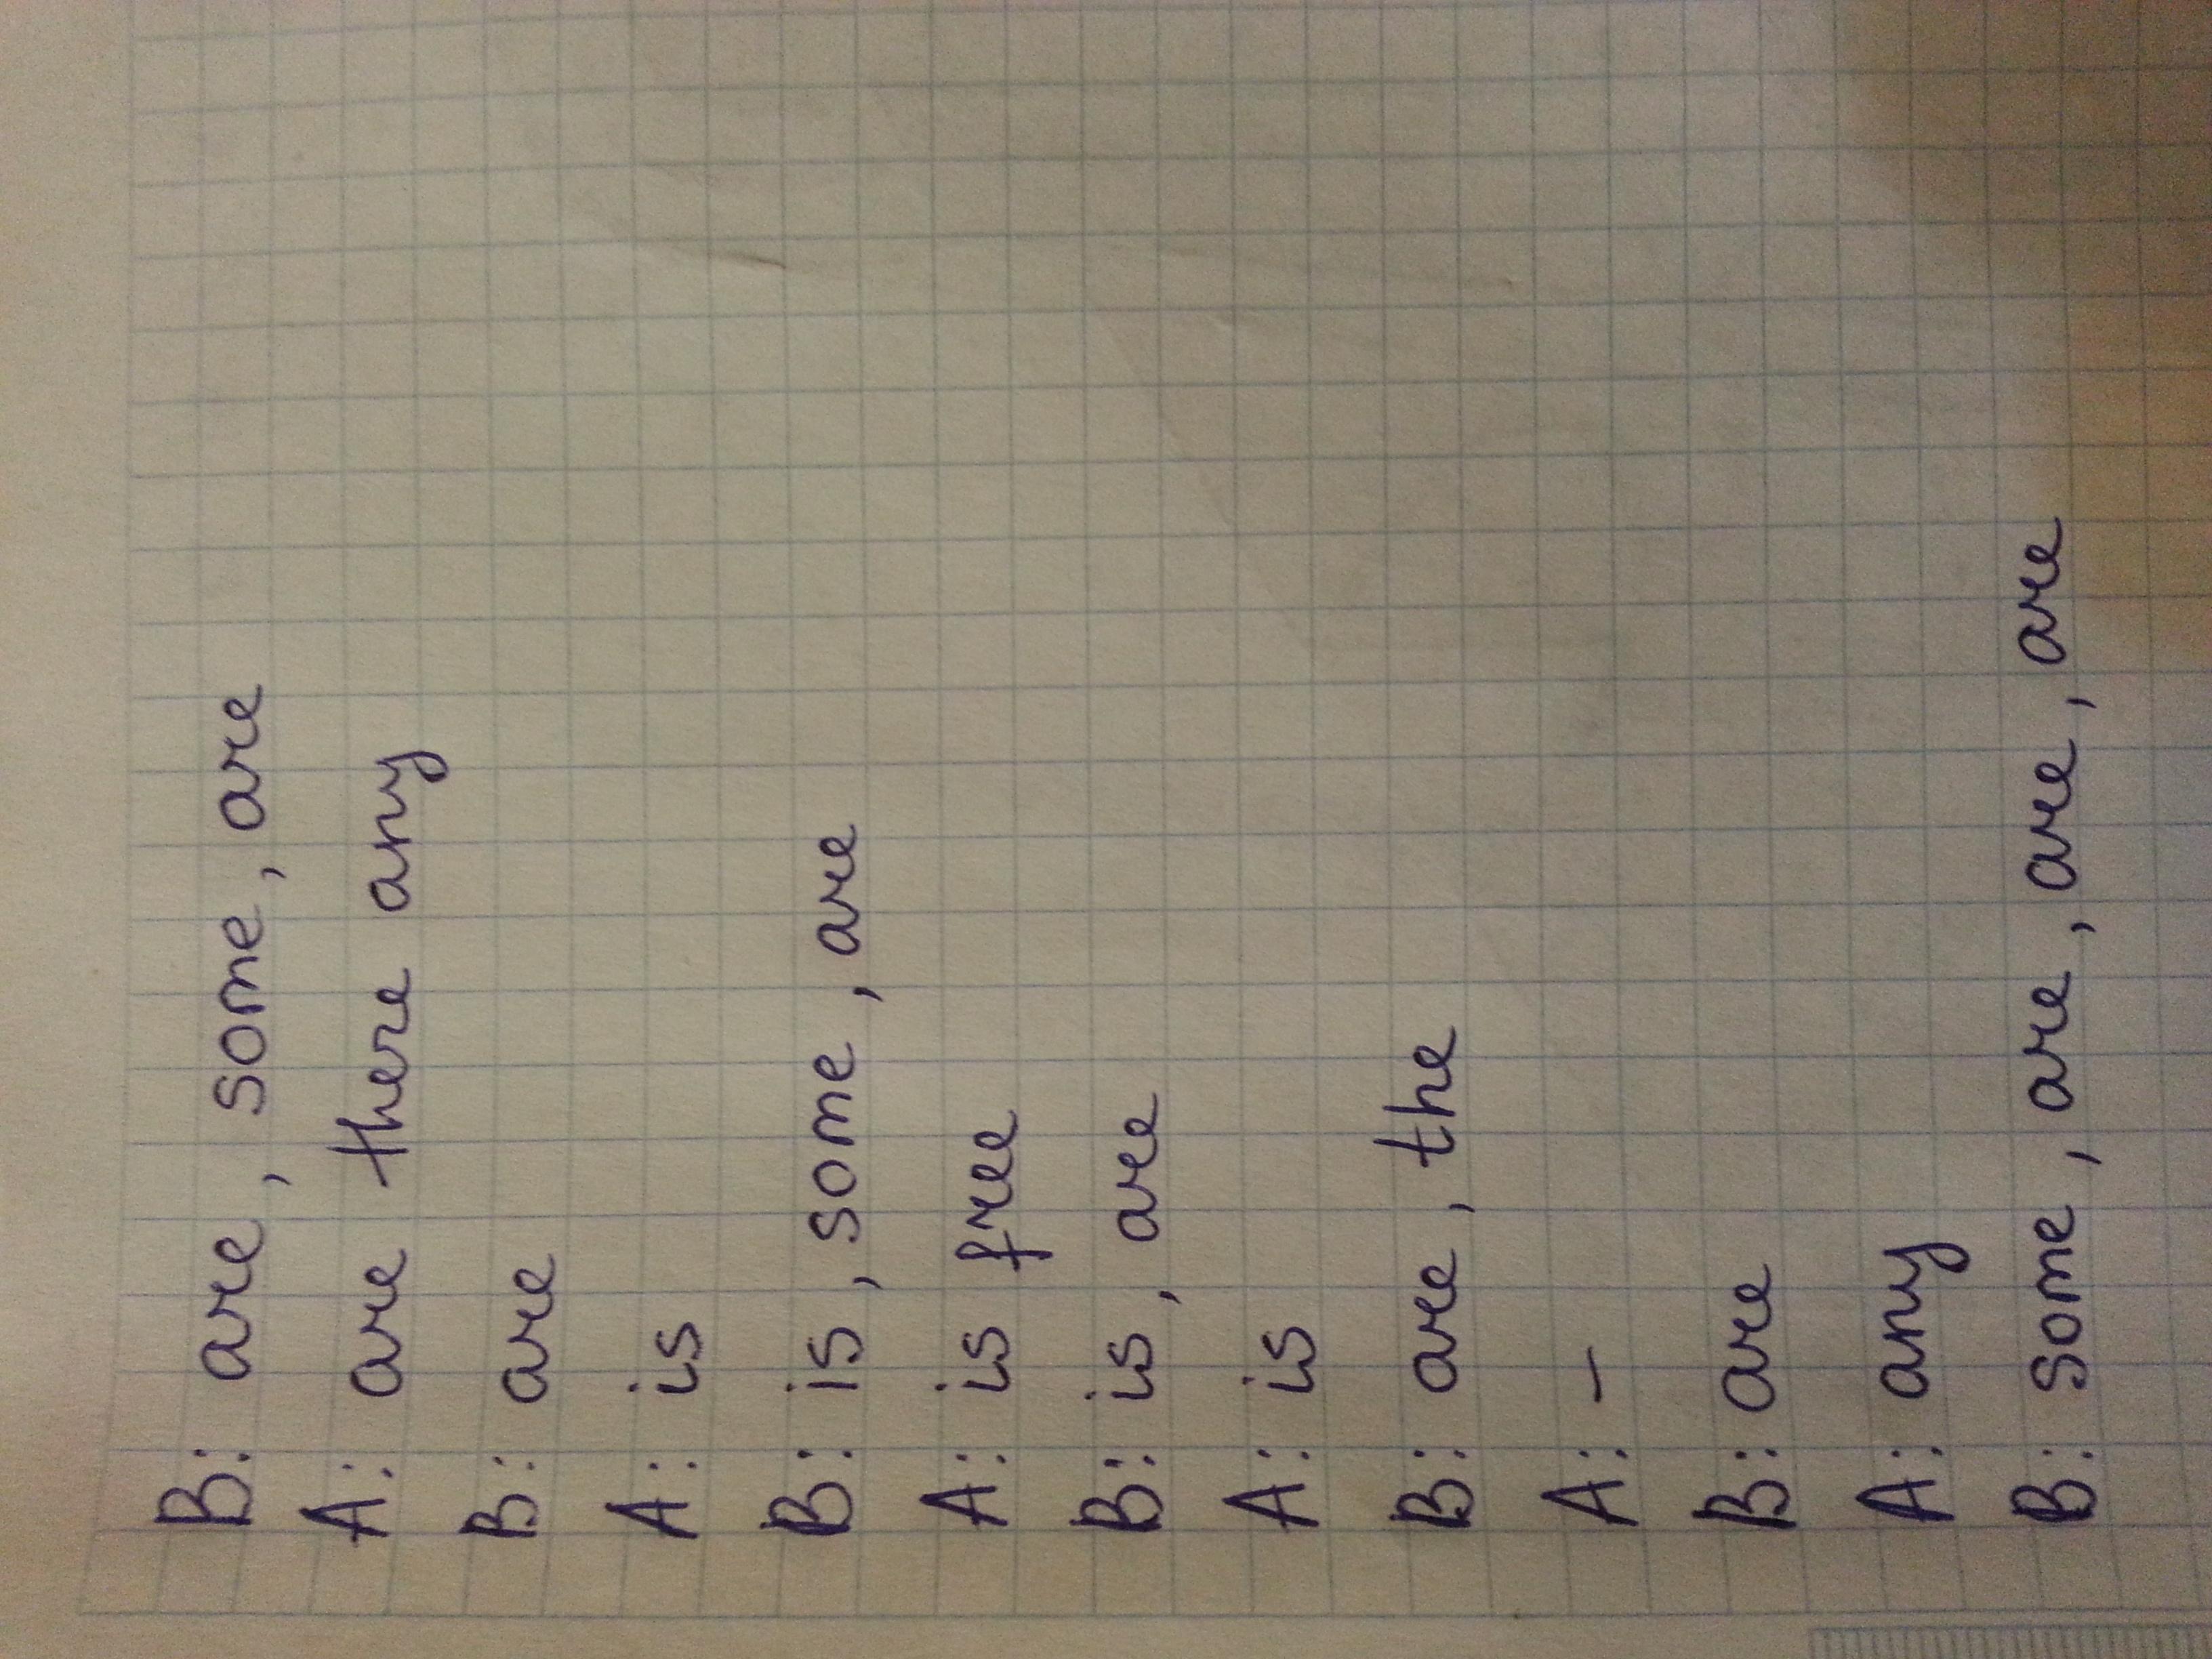 B: are, some, are
A: are there any
B: are
A: is
B: is, some, are
A: is free
B: is, are
A: is
B: are, the
A: -
B: are
A: any
B: some, are, are, are